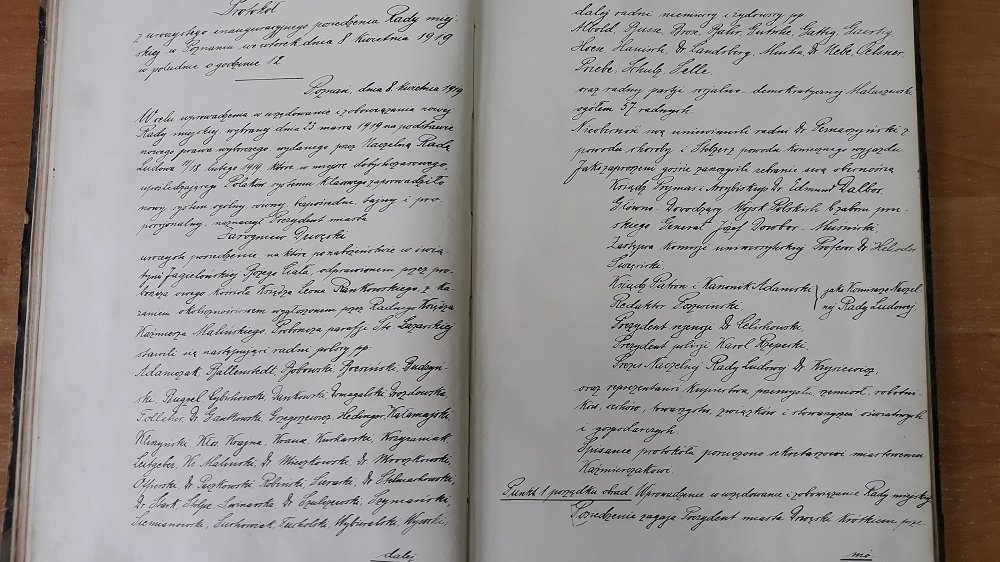 Protokół
z uroczystego inauguracyjnego posiedzenia Rady miej-
skiej w Poznaniu we wtorek dnia 8 kwietnia 1919
w południe o godzinie 12
Poznań, dnia 8 kwietnia 1919
W celu wprowadzenia w urzędowanie i zobowiązania nowej
Rady miejskiej wybranej dnia 23 marca 1919 na podstawie
nowego prawa wyborczego, wydanego przez Naczelną Radę
Ludową 18. lutego 1919 które w miejsce dotychczasowego,
upośledzającego Polaków systemu klasowego zaprowadziło
nowy system ogólny, równy, bezpośredni, tajny i pro-
porcjonalny, naznaczył Prezydent miasta
Jarogniew Drwęski
uroczyste posiedzenie, na które po nabożeństwie w świą-
tyni Jagiellońskiej Bożego Ciała, odprawionem przez pro-
boszcza owego kościoła Księdza Leona Rankowskiego z ka-
zaniem okolicznościowem wygłoszonem przez Radnego Księdza
Kazimierza Malińskiego Proboszcza parafji Św. Łazarskiej
stawili się następujący radni polscy pp.
Adamczak, Ballenstedt, Bobowski, Brzeziński, Budzyń-
ski, Cybichowski, Dankowski, Domagalski, Drozdowska,
Dr. Gantkowski, Gregorzewicz, Hedinger, Kałamajski,
Kliszyński, Kłos, Krajna, Krauz, Kucharski,
Leitgeber, Ks. Maliński, Dr. Mieczkowski, Dr. Mroczkowski,
Offierski, Dr. Paczkowski, Robiński, Dr. Stelmachowski,
Dr. Stark, Stolpe, Świnarska, Dr. Szulczewski, Szymański,
Suchowiak, Wybieralski, Wysocki,
dalej
dalej radni niemieccy i żydowscy pp.
Litsche, Hattig,
Hoen, Hanisch, Dr. Landsberg, Muska, Dr. Nebe, Oelsner,
Priebe, Schulz, Selle
oraz radny partji socjalno-demokratycznej Matuszewski
ogółem 57 radnych.
Nieobecność swą uniewinnili radni Dr. z
powodu choroby i Stolzer z powodu koniecznego wyjazdu
Jako zaproszeni goście zaszczycili zebranie swą obecnością
Ksiądz Prymas i Arcybiskup Dr. Edmund Dalbor.
Głowno-Dowodzący Wojsk Polskich b. zaboru pru-
skiego Generał Józef Dowbor-Muśnicki
Zastępca Komisji uniwersyteckiej Profesor Dr. Heliodor
Święcicki
Ksiądz Patron i Kanonik Adamski
Redaktor Poszwiński
jako Komisarze Naczel-
nej Rady Ludowej.
Prezydent rejencji Dr. Celichowski,
Prezydent policji Karol Rzepecki,
Prezes Naczelnej Rady Ludowej Dr. Krysiewicz
oraz reprezentanci kupiectwa, przemysłu, rzemiosł, robotni-
ków, cechów, towarzystw, związków i stowarzyszeń oświatowych
i gospodarczych.
Spisanie protokółu poruczono sekretarzowi miastowemu
Kaźmierczakowi.
Punkt 1 porządku obrad. Wprowadzenie w urzędowanie i zobowiązanie Rady miejskiej
Posiedzenie zagaja Prezydent miasta Drwęski krótkiem prze-
mó